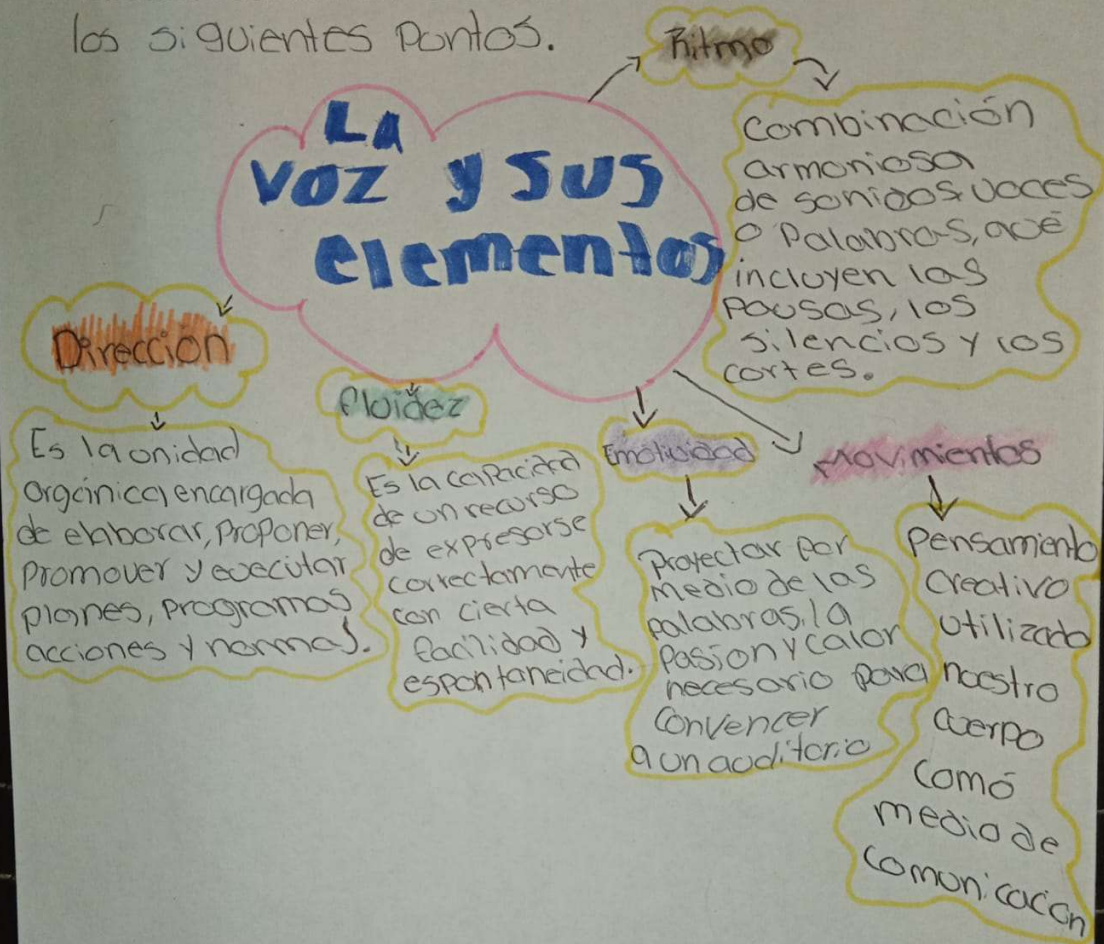 los siguientes puntos.
La
voz y sus
elementos
Ritmo
Combinación
armoniosa
de sonidos voces
o palabras, qué
incluyen las
pausas, los
silencios y los
cortes.
Dirección
Es la unidad
orgánica, encargada
de elaborar, proponer,
promover y ejecutar
planes, programas
acciones y normas.
fluidez
Es la capacidad
de un recurso
de expresarse
correctamente
con cierta
facilidad y
espontaneidad.
Emotividad
proyectar por
medio de las
palabras, la
pasion y calor
necesario para
convencer
a un auditorio
Movimientos
Pensamiento
creativo
utilizado
nuestro
cuerpo
comó
medio de
comunicación